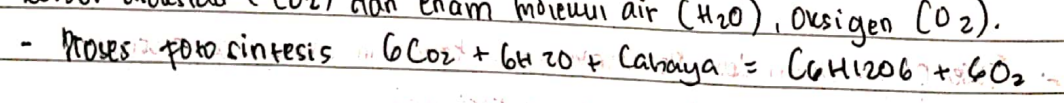 (CO2) dan enam molekul air (H2O), Oksigen (O2).
- Proses fotosintesis 6CO2 + 6H2O + Cahaya = C6H12O6 + 6O2